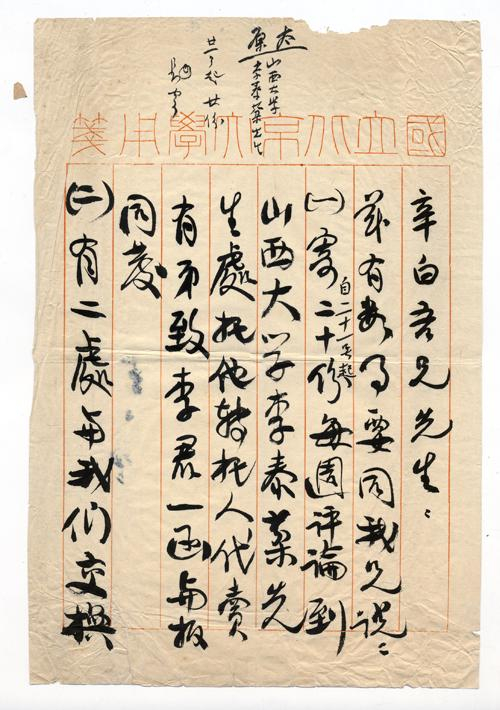 國立北京大學用箋
太原
山西大学
李泰棻先生
廿一号起 廿份
辛白吾兄先生：
茲有数事要同我兄説：
(一)寄二十份每週評論到
自二十一号起
山西大学李泰棻先
生處托他轉托人代賣
有弟致李君一函与报
同發
(二)有二處与我们交換